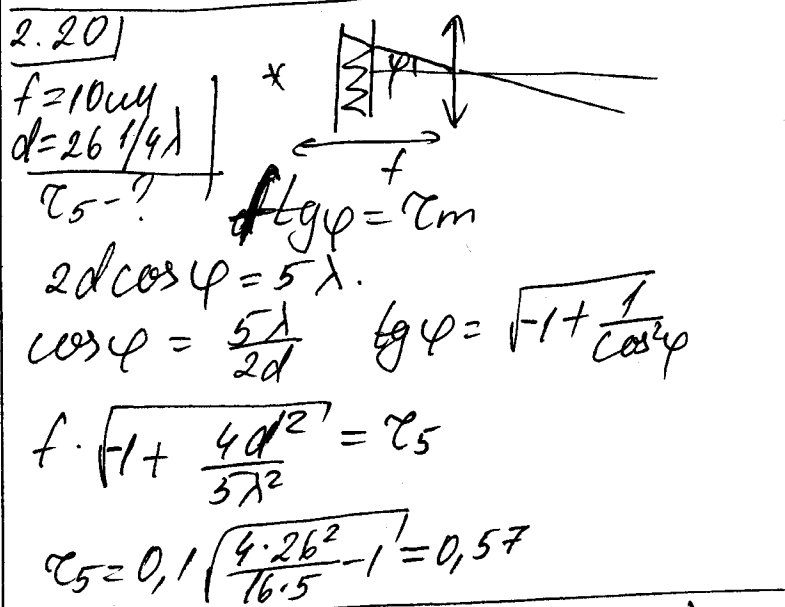 2.20
f=10см
d=26 1/4λ
r₅-?
* φ
f
f tgφ = rm
2d cosφ = 5λ.
cosφ = 5λ/2d tgφ = √(-1 + 1/cos²φ)
f · √(-1 + 4d²/5λ²) = r₅
r₅ = 0,1 √(4·26²/16·5 - 1) = 0,57